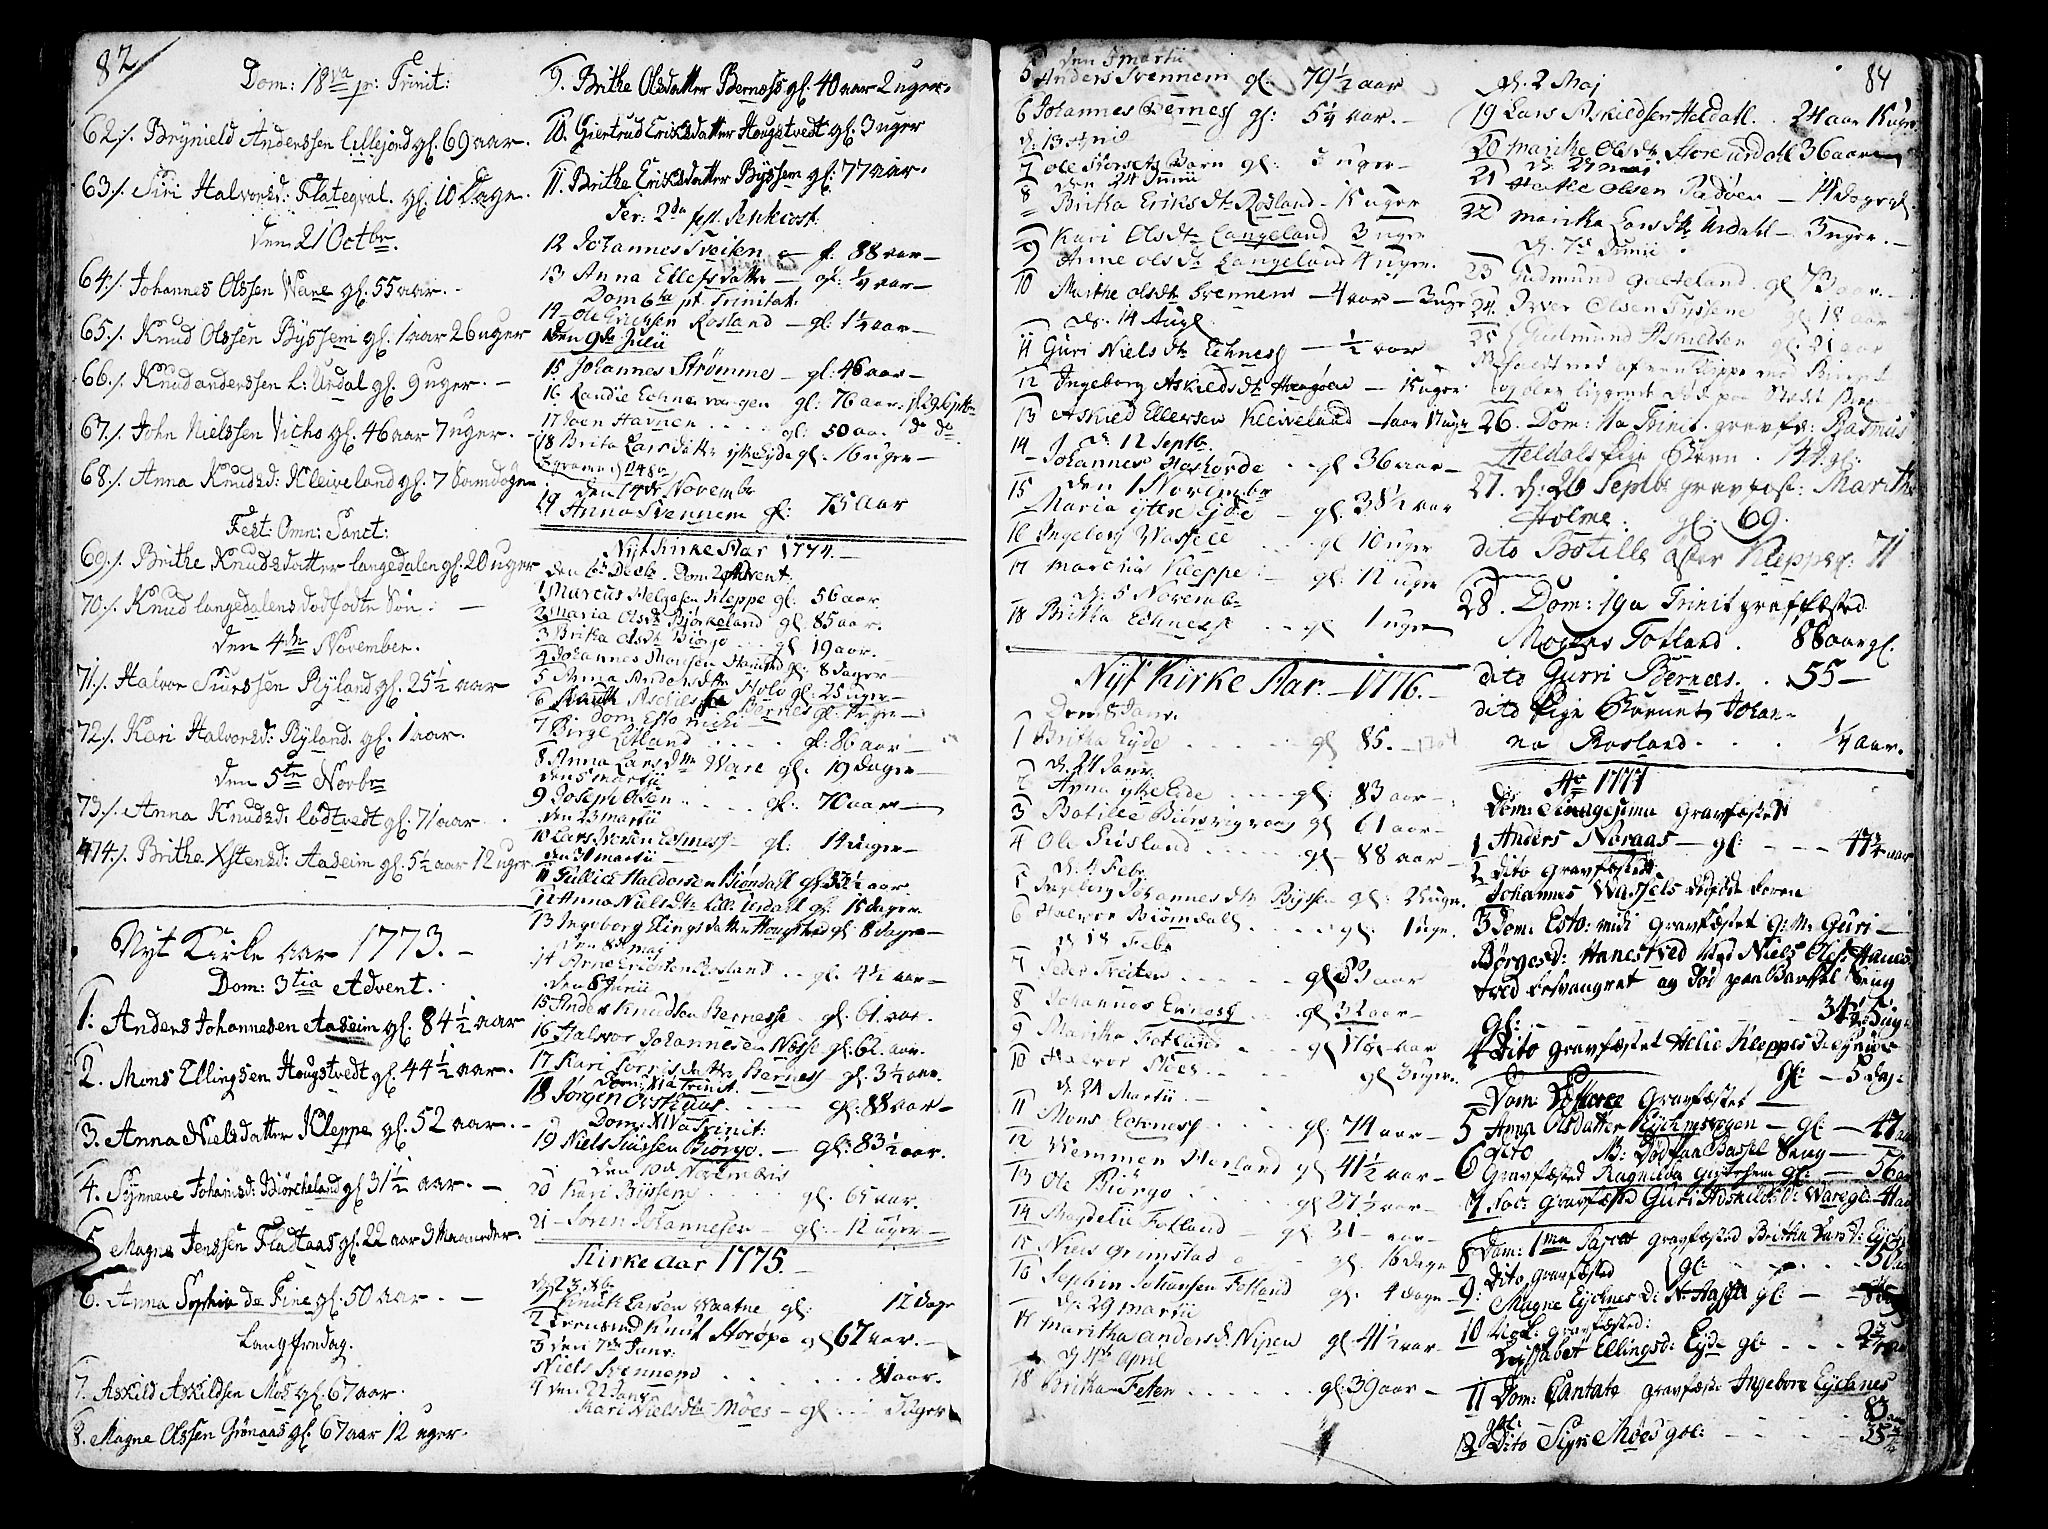 82
Dom: 18va p: Trinit:
62./. Brynield Anderssen Lillejord gl. 69 aar.
63./. Siri Halvorsd: Flateqval. gl. 10 Dage.
Den 21 Octbr.
64./. Johannes Olssen Ware gl. 55 aar.
65./. Knud Olssen Byssem gl. 1 aar 26 uger
66./. Knud anderssen L: Urdal gl. 9 uger. –
67./. John Nielssen Vicho gl. 46 aar 7 uger. –
68./. Anna Knudsd: Kleiveland gl. 7 Samdagen
Fest: Omn: Sanct:
69./. Brithe Knudsdatter langedalen gl. 20 uger
70./. Knud langedalens dødfødte Søn. –
Den 4de November.
71./. Halvor Siurssen Ryland gl. 25 ½ aar
72./. Kari Halvorsd: Ryland. gl. 1 aar.
Den 5te Novbr
73./. Anna Knudsd: lodtvedt gl. 71 aar
74./. Brithe Xstensd: Aaseim gl. 5½ aar 12 uger
Nyt Kirke aar 1773. –
Dom: 3tia Advent.
1. Anders Johannesen Aaseim gl. 84 ½ aar
2. Mons Ellingsen Hougstvedt gl. 44 ½ aar.
3. Anna Nielsdatter Kleppe gl. 52 aar. –
4. Synneve Johansd: Biörcheland gl 31 ½ aar. –
5. Magne Jenssen Fladtaas gl. 22 aar 3 Maaneder.
6. Anna Sophia de Fine gl. 50 aar. –
Langfredag.
7. Askild Askildsen Moss gl. 67 aar.
8. Magne Olssen Grönaas gl. 67 aar 12 uger.
9. Brithe Olsdatter Berness gl. 40 aar 2 uger.
10. Giertrud Erichsdatter Hougstvedt gl. 3 uger
11. Brithe Erichsdatter Byssem gl. 77 aar.
Fer: 2da fest. Penkcost.
12 Johannes Tveiten – gl. 88 aar –
13 Anna Ellefsdatter – gl. ¼ aar –
Dom 6ta pt. Trinitat:
14 – Ole Erichsen Rosland – gl: 1¼ aar –
Den 9de Julii
15 Johannes Strømme – gl: 46 aar –
16 Randie Echnes vogen gl: 76 aar.
17 Joen Havnen . . . . gl: 50 aar
18 Brita Larsdatter ytre Eyde gl. 16 uger –
Den 14de Novembr
19 Anna Svennem gl: 75 Aar
Nyt Kirke Aar 1774. –
Den 6te Decb. Dom: 2 Advent.
1 Marcus Helgesen Kleppe gl: 56 aar.
2 Maria Olsdtr Björkeland gl: 85 aar.
3 Brita Olsdtr Biörgo . . gl 19 aar. –
4 Johannes Monsen gl: 8 dager –
5 Anna Andersdtr Holo gl: 25 uger –
6 Bernes gl:
Dom Esto michi
7 Birge Lütland . . . . gl: 86 aar –
8 Anna Larsdtr Ware gl: 19 dager –
Den 5 martii
9 Joseph Olsen . . . . . gl: 70 aar –
Den 23 martii
10 Lars Iversen Echness – gl: 14 uger –
Den 31 martii –
11 Gullick Haldorsen Biondahl gl 33½ aar.
12 Anna Nielsdtr Lill: Urdahl gl: 15 dager.
13 Ingeborg Ellingsdatter Hougstved gl: 8 dage –
Den 8de maj
14 Arne Erichsen Rosland . . gl: 4½ aar –
Den 5 Junii
15 Anders Knudsen Bernesse . . gl: 61. aar.
16 Halvor Johannesen Nosse – gl: 62. aar.
17 Kari datter Berness gl: 3½ aar.
Dom: XIa Trinit.
18 Jørgen – – gl: 88 aar –
Dom: XIVa Trinit:
19 Niels Siursen Biörgo. – gl: 83 ½ aar.
Den 10de Novembris
20 Kari Byssem . . . . . gl: 65 aar.
21 – Søren Johannesen – gl: – 12 uger –
Kirke Aar 1775. –
d. 23. Xb.
1 Knuth Larsen Waatne gl: 12 dage
2 Knut Storöpe gl 67 aar. –
3 den 7de Janr:
Niels Svennem . . . . . . . 81 aar.
4 den 22 Janr
Kari Nielsdtr Möes – gl: . . . 5 uger
84
den 5 martii
5 Anders Svennem gl: 79½ aar
6 Johannes Berness gl: 5¼ aar. –
d: 13 April
7 Ole Barn gl: 3 uger –
den 24 Junii
8 Britha Eriksdtr Rosland – 15 uger
9 Kari Olsdtr Langeland 3 uger
9 Anne Olsdtr Langeland 4 uger.
10 Marthe Olsdtr Svennem – 4 aar – 3 uger
d: 14 Aug.
11 Guri Nielsdtr Echness – ½ aar
12 Ingeborg Askildsdtr Haugøen – 15 uger.
13 Askild Ellersen Kleiveland – 1 aar 17 uger
14 d: 12 Septb.
Johannes Haskorde . . gl 36 aar –
15 den 1 Novembr
Maria ytre Eyde – gl: 38½ aar
16 Ingeborg Wassell . . . gl 10 uger
17 Marchus Kleppe . – gl: 12 uger
d: 5 Novembr
18 Britha Echness . . gl 1 uger
Nyt Kirke Aar – 1776. –
Den 8 Janr.
1 Britha Eyde . . . . . gl 85. –
d: 24 Janr.
2 Anna ytre Eide . . . . gl: 83 aar –
3 Botille gl 61 aar –
4 Ole Röisland . . . . . gl – 88 aar –
d: 4 Febr
5 Ingeborg Johannesdtr Byssem gl: 2½ uge.
6 Halvor Biörndahl . . . . . gl: 1 uge.
d 18 Febr
7 Peder Tveiten . . . . . gl 83 aar
8 Johannes Echness . . gl 32 aar –
9 Maritha Fotland . – gl 17 aar
10 Halvor Möes . . . . . gl 3 uger.
d. 24 Martii –
11 Mons Echness . . . . . gl: 74 aar –
12 Wemmen Herland gl 41½ aar –
13 Ole Biörgo . . . . . . gl 27½ aar –
14 Magdelie Fotland – gl: 31 – aar –
15 Niels Grimstad – gl: 16 dage
16 Sephen Johansen Fotland gl: 4 dage –
d: 29 martii
17 Maritha Andersd: Nipen gl: 41½ aar –
d. 11te April
18 Britha Feten . . . . . . gl: 39 aar –
d. 2 Maj
19 Lars Askildsen Heldahl. . 24 aar 15 uger
20 Marithe Olsdtr Store urdahl 36 aar
d: 27 maj
21 Helle Olsen Padöen – 14 dage gl
22 Maritha Larsdtr Urdahl – 3 uger. –
d. 7de Junii
23 Gudmund Gaeteland gl 73 aar. –
24. Iver Olsen Tyssene gl: 18 aar
25 Gudmund Askildsen gl: 21 aar
26. Dom: 11a Trinit. gravf: Rasmus
Heldals pige Børn. 14 gl:
27. d: 26 Septb: gravfæst: Marithe
Holme: gl: 69.
dito Botille Kleppe gl: 71
28. Dom: 19a Trinit graffæsted
Mogens Totland. 86 aar gl.
dito Gurri Bernæs. . . 55 –
dito pige Barnet Johan-
na Rosland. . . . ¼ aar.
Ao 1777
Dom: Sexagesima Gravfæstet
1 Anders Noraas – gl: – – – 47¾ aar
2 Dito Gravfæstet
Johannes Wassels dødføde Søren
3 Dom: Esto: midi gravfæstet Guri –
Børgesd: Hanestved ved Niels Olss: Hane-
stved besvangret og død paa Barsel Seng
gl: – – – – – 34½
4 Dito gravfæstet Helie Kleppes
gl: – 5 dage
Dom: Gravfæstet –
5 Anna Olsdatter – gl: – 47 aar
Dito B: Død paa Barsel Seng –
6 Gravfæsted Ragnilda gl: – 56 aar
7 gravfæsted Guri Askildsd: Ware gl –
8 Dom: 1ma Pasca gravfæsted Britha Larsd: Eyde
gl: – – – –
9: Dito gravfæsted
Magne Eychnes gl: –
10 gravfæsted:
Lisabet Ellingsd: Eyde gl: . . . 2¾ aar
11 Dom: Cantate gravfæste Ingeborg Eychnes
gl: – – – – 83
12 Dito Sigri Moes gl: – – – – 35½